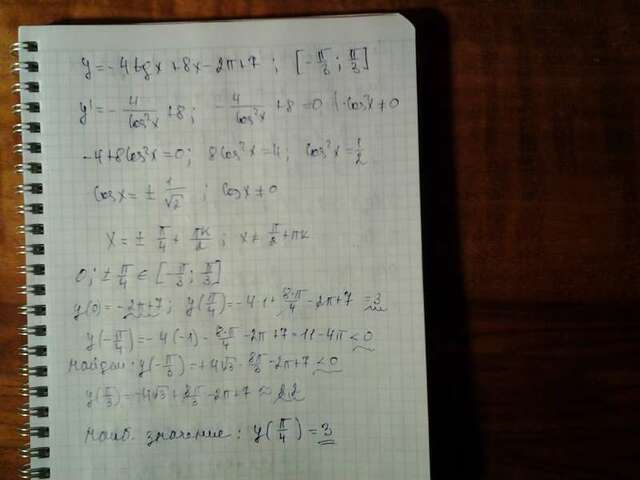 y = -4tgx + 8x - 2π + 7 ; [-π/3 ; π/3]
y' = - 4/cos²x + 8 ; - 4/cos²x + 8 = 0 | · cos²x ≠ 0
-4 + 8cos²x = 0 ; 8cos²x = 4 ; cos²x = 1/2
cosx = ± 1/√2 ; cosx ≠ 0
x = ± π/4 + πk/2 ; x ≠ π/2 + πk
0 ; ± π/4 ∈ [-π/3 ; π/3]
y(0) = -2π+7 ; y(π/4) = -4·1 + 8·π/4 - 2π + 7 = 3
y(-π/4) = -4(-1) - 8·π/4 - 2π + 7 = 11 - 4π < 0
Найдем : y(-π/3) = +4√3 - 8π/3 - 2π + 7 < 0
y(π/3) = -4√3 + 8π/3 - 2π + 7 ≈ 2,2
Наиб. значение : y(π/4) = 3